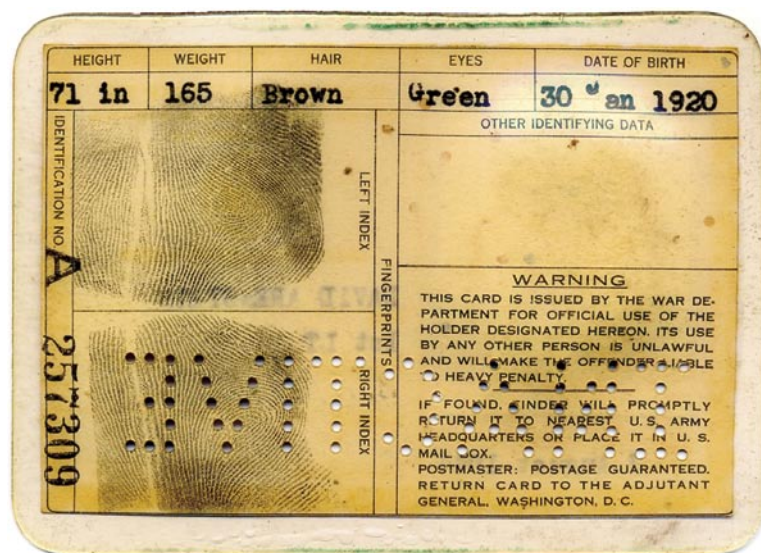 HEIGHT WEIGHT HAIR EYES DATE OF BIRTH
71 in 165 Brown Green 30 Jan 1920
OTHER IDENTIFYING DATA
IDENTIFICATION NO.
A 257309
LEFT INDEX
RIGHT INDEX
FINGERPRINTS
WARNING
THIS CARD IS ISSUED BY THE WAR DE-
PARTMENT FOR OFFICIAL USE OF THE
HOLDER DESIGNATED HEREON. ITS USE
BY ANY OTHER PERSON IS UNLAWFUL
AND WILL MAKE THE OFFENDER LIABLE
TO HEAVY PENALTY.
IF FOUND, FINDER WILL PROMPTLY
RETURN IT TO NEAREST U. S. ARMY
HEADQUARTERS OR PLACE IT IN U. S.
MAIL BOX.
POSTMASTER: POSTAGE GUARANTEED.
RETURN CARD TO THE ADJUTANT
GENERAL, WASHINGTON, D. C.